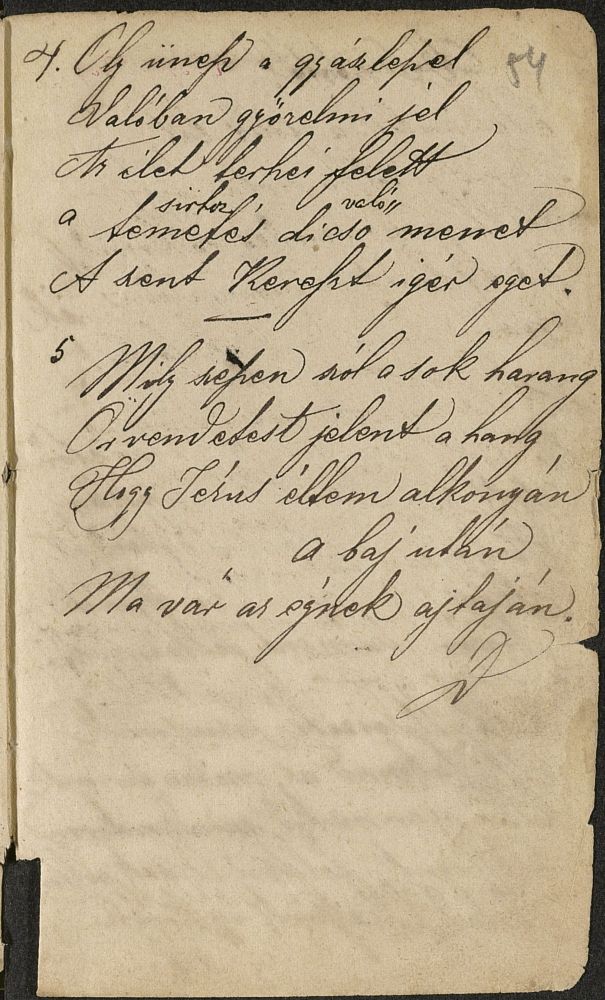 54
4. Oly ünep a gyázlepel
Valóban győzelmi jel
Az élet terhei felett
sirhoz való
a temetés dicső menet
A szent Kereszt igér eget.
5 Mily szépen szól a sok harang
Örvendetest jelent a hang
Hogy Jézus éltem alkonyán
a baj után
Ma vár az égnek ajtaján.